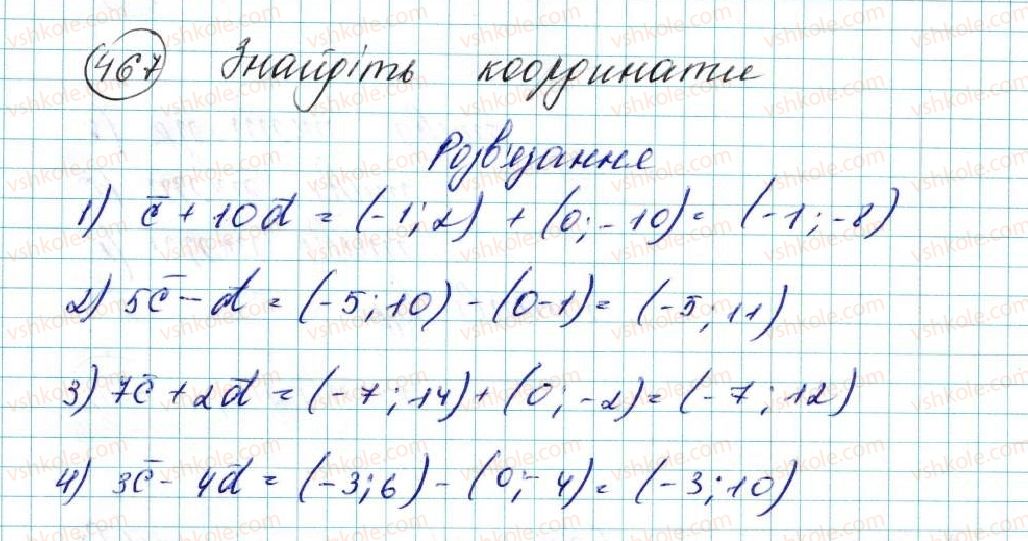 467 Знайдіть координати
Розв'язання
1) c̄ + 10d̄ = (-1; 2) + (0; -10) = (-1; -8)
2) 5c̄ - d̄ = (-5; 10) - (0-1) = (-5; 11)
3) 7c̄ + 2d̄ = (-7; 14) + (0; -2) = (-7; 12)
4) 3c̄ - 4d̄ = (-3; 6) - (0; -4) = (-3; 10)
vshkole.com